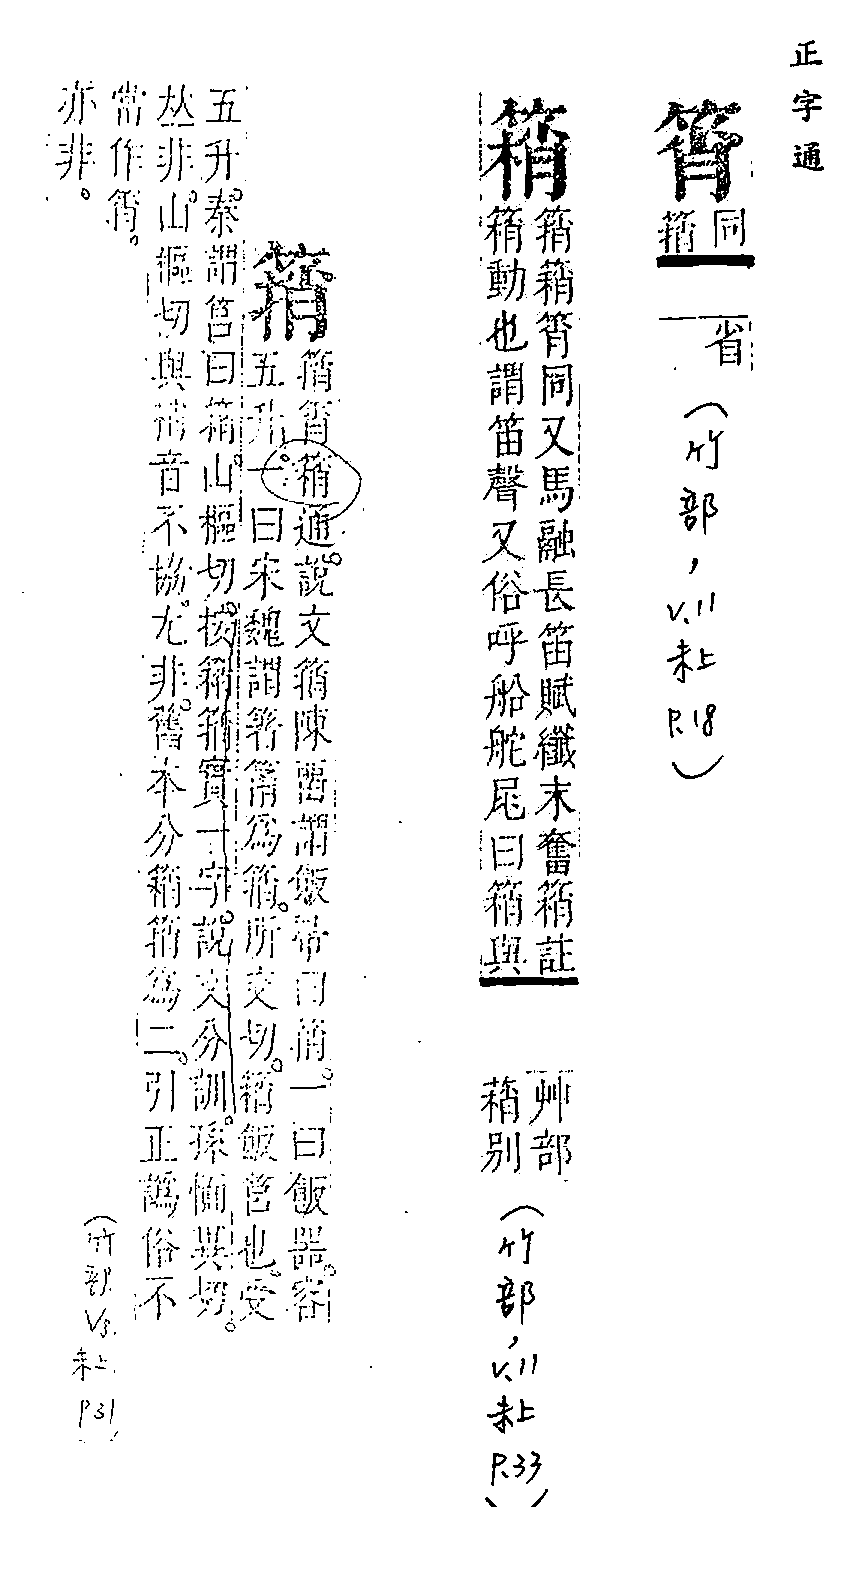 正字通
筲
同
䈰
省
(竹部,V.11未上P.18)
䈰𥳓筲同又馬融長笛賦纖末奮䈰註
䈰動也謂笛聲又俗呼船舵尾曰䈰與
艸部
蕱別
(竹部,V.11未上P.33)
𥳓
䈰筲通。說文䈰陳畱謂飯帚曰䈰。一曰飯器。容
五升。一曰宋魏謂箸筩為䈰。所交切。𥳓飯筥也。受
五升。秦謂筥曰𥳓。山樞切。按𥳓䈰實一字。說文分訓。孫愐異切。
𠀤非。山樞切與稍音不協。尤非。舊本分𥳓䈰為二。引正譌俗不
當作筲。
亦非。
(竹部V3.未上.P31)